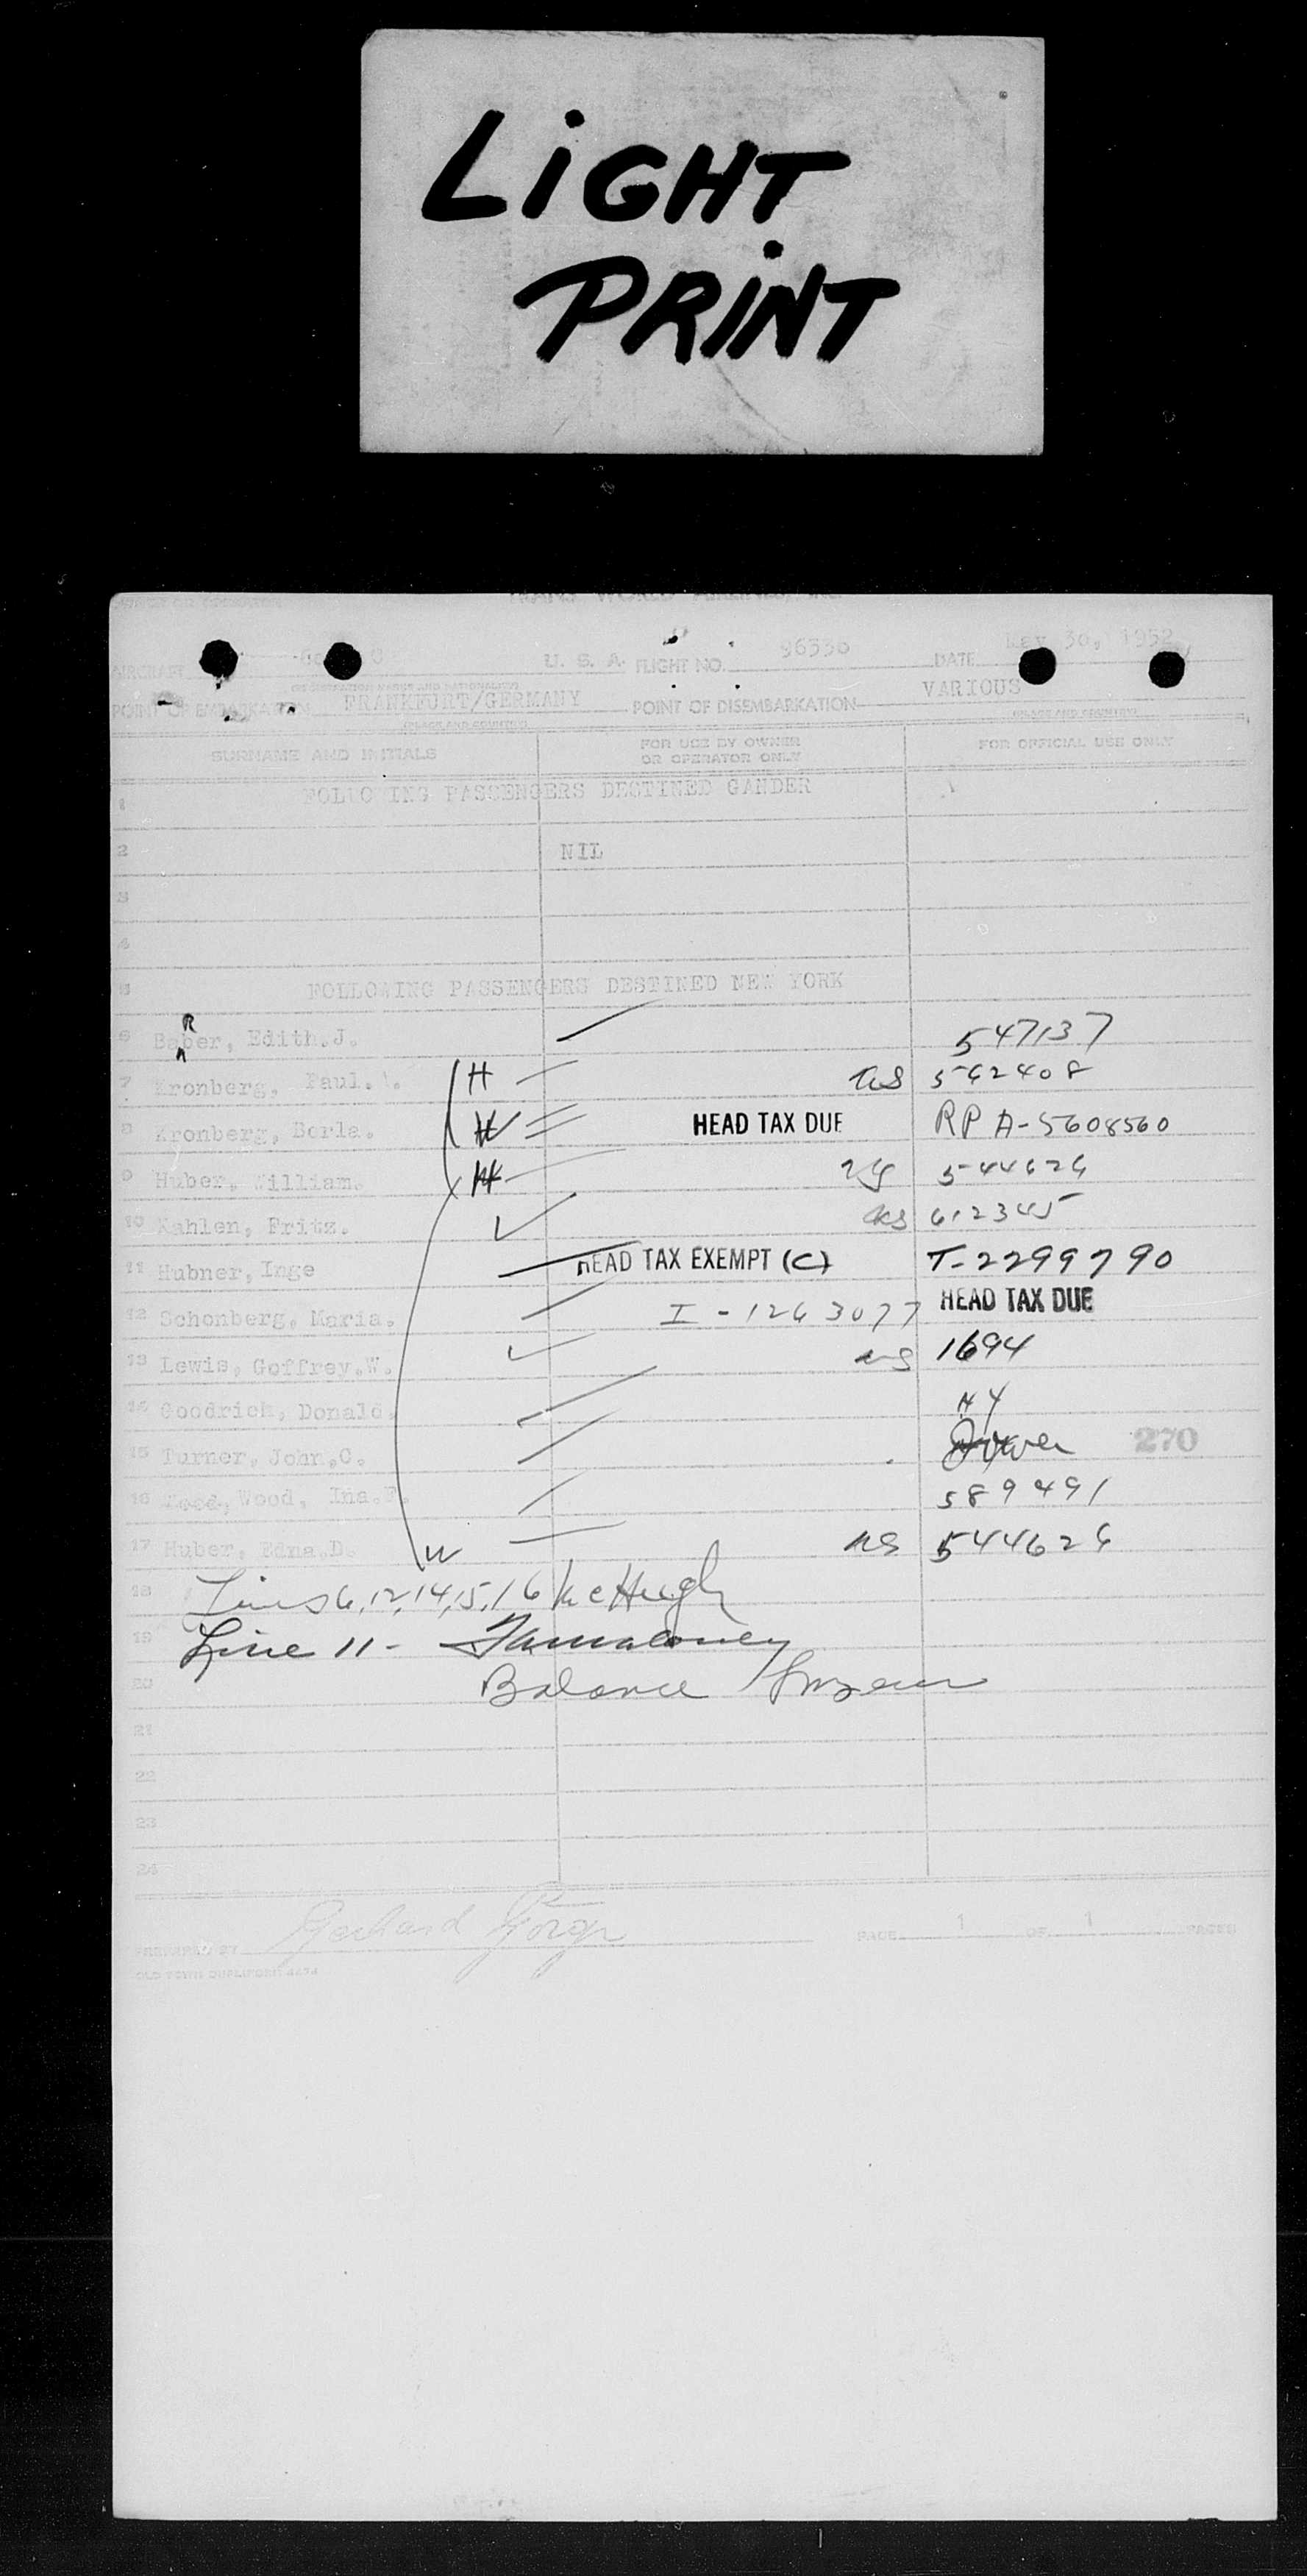 LiGHT
PRiNT
TRANS WORLD AIRLINES, INC.
AIRCRAFT U. S. A. FLIGHT NO. 96330 DATE May 30, 1952
POINT OF EMBARKATION FRANKFURT/GERMANY POINT OF DISEMBARKATION VARIOUS
(PLACE AND COUNTRY) (PLACE AND COUNTRY)
SURNAME AND INITIALS FOR USE BY OWNER OR OPERATOR ONLY FOR OFFICIAL USE ONLY
1 FOLLOWING PASSENGERS DESTINED GANDER
2 NIL
3
4
5 FOLLOWING PASSENGERS DESTINED NEW YORK
R
6 Baber, Edith.J. 547137
7 Kronberg, Paul. H 562408
8 Kronberg, Berla. W HEAD TAX DUE RP A-5608560
9 Huber, William. H 544626
10 Kahlen, Fritz. 612345
11 Hubner, Inge HEAD TAX EXEMPT (C) T-2299790
12 Schonberg, Maria. I-1263077 HEAD TAX DUE
13 Lewis, Goffrey.W. 1694
14 Goodrich, Donald. NY
15 Turner, John.C. 270
16 Wood, Ina.F. 589491
17 Huber, Edna.D. W 544626
18 Lines 6, 12, 14, 15, 16 McHugh
19 Line 11 -
20 Balance
21
22
23
24
PREPARED BY Gerhard PAGE 1 OF 1 PAGES